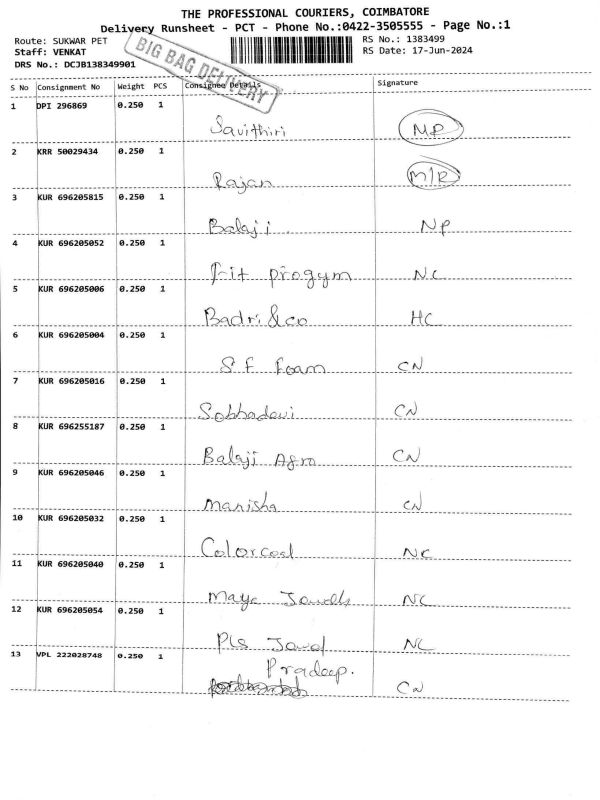 THE PROFESSIONAL COURIERS, COIMBATORE
Delivery Runsheet - PCT - Phone No.:0422-3505555 - Page No.:1
Route: SUKWAR PET RS No.: 1383499
Staff: VENKAT RS Date: 17-Jun-2024
DRS No.: DCJB138349901
BIG BAG DELIVERY
S No Consignment No Weight PCS Consignee Details Signature
1 DPI 296869 0.250 1
Savithiri MP
2 KRR 50029434 0.250 1
Rajan M/R
3 KUR 696205815 0.250 1
Balaji. NP
4 KUR 696205052 0.250 1
Fit progym NC
5 KUR 696205006 0.250 1
Badri & co HC
6 KUR 696205004 0.250 1
S F Foam CN
7 KUR 696205016 0.250 1
Sobhadevi CN
8 KUR 696255187 0.250 1
Balaji Agro CN
9 KUR 696205046 0.250 1
Manisha CN
10 KUR 696205032 0.250 1
Colorcoal NC
11 KUR 696205040 0.250 1
Maya Jewells NC
12 KUR 696205054 0.250 1
Pls Jewel NC
13 VPL 222028748 0.250 1
Pradeep.
CN